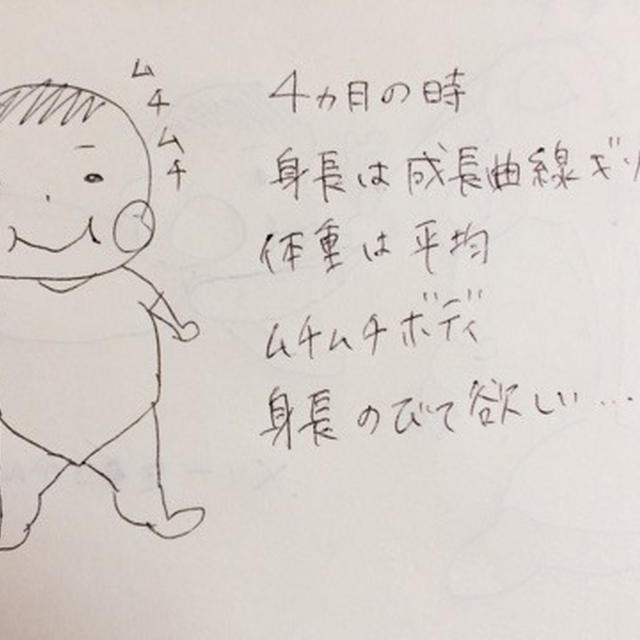 ムチムチ
4ヵ月の時
身長は成長曲線ギリ
体重は平均
ムチムチボディ
身長のびて欲しい…